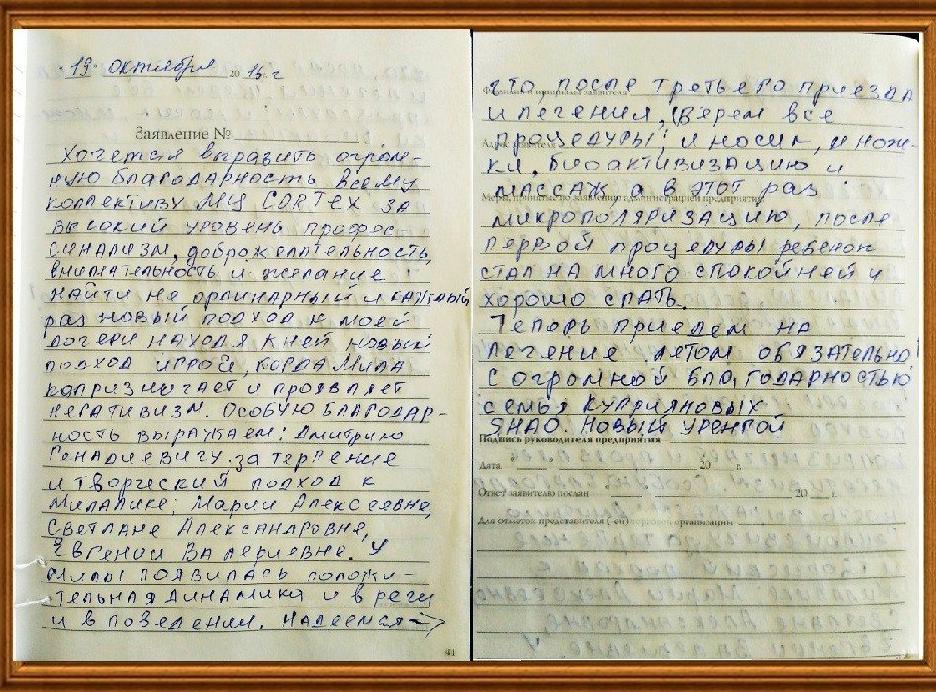 "19" октября 2015 г
Заявление №
Хочется выразить огром-
ную благодарность всему
коллективу МЦ CORTEX за
высокий уровень профес
синализм, доброжелательность,
внимательность и желание
найти не ординарный и каждый
раз новый подход к моей
дочери находя к ней новый
подход игрой, когда Мила
капризничает и проявляет
негативизм. Особую благодар-
ность выражаем: Дмитрию
Генадиевичу за терпение
и творческий подход к
Миланике; Марии Алексеевне,
Светлане Александровне,
Евгении Валериевне. У
Милы появилась положи-
тельная динамика и в речи
и в поведении. Надеемся
41
что, после третьего приезда
Фамилия и инициалы заявителя
и лечения, (Берем все
процедуры; и носик, и нож-
Адрес заявителя
ки, биоактивизацию и
массаж а в этот раз
Меры, принятые по заявлению администрацией предприятия:
микрополяризацию, после
первой процедуры ребенок
стал на много спокойней и
хорошо спать.
Теперь приедем на
лечение летом обязательно
С огромной благодарностью
семья Куприяновых
ЯНАО. Новый Уренгой
Подпись руководителя предприятия
Дата 20 г.
Ответ заявителю послан 20 г.
Для отметок представителя (-ей) торговой организации